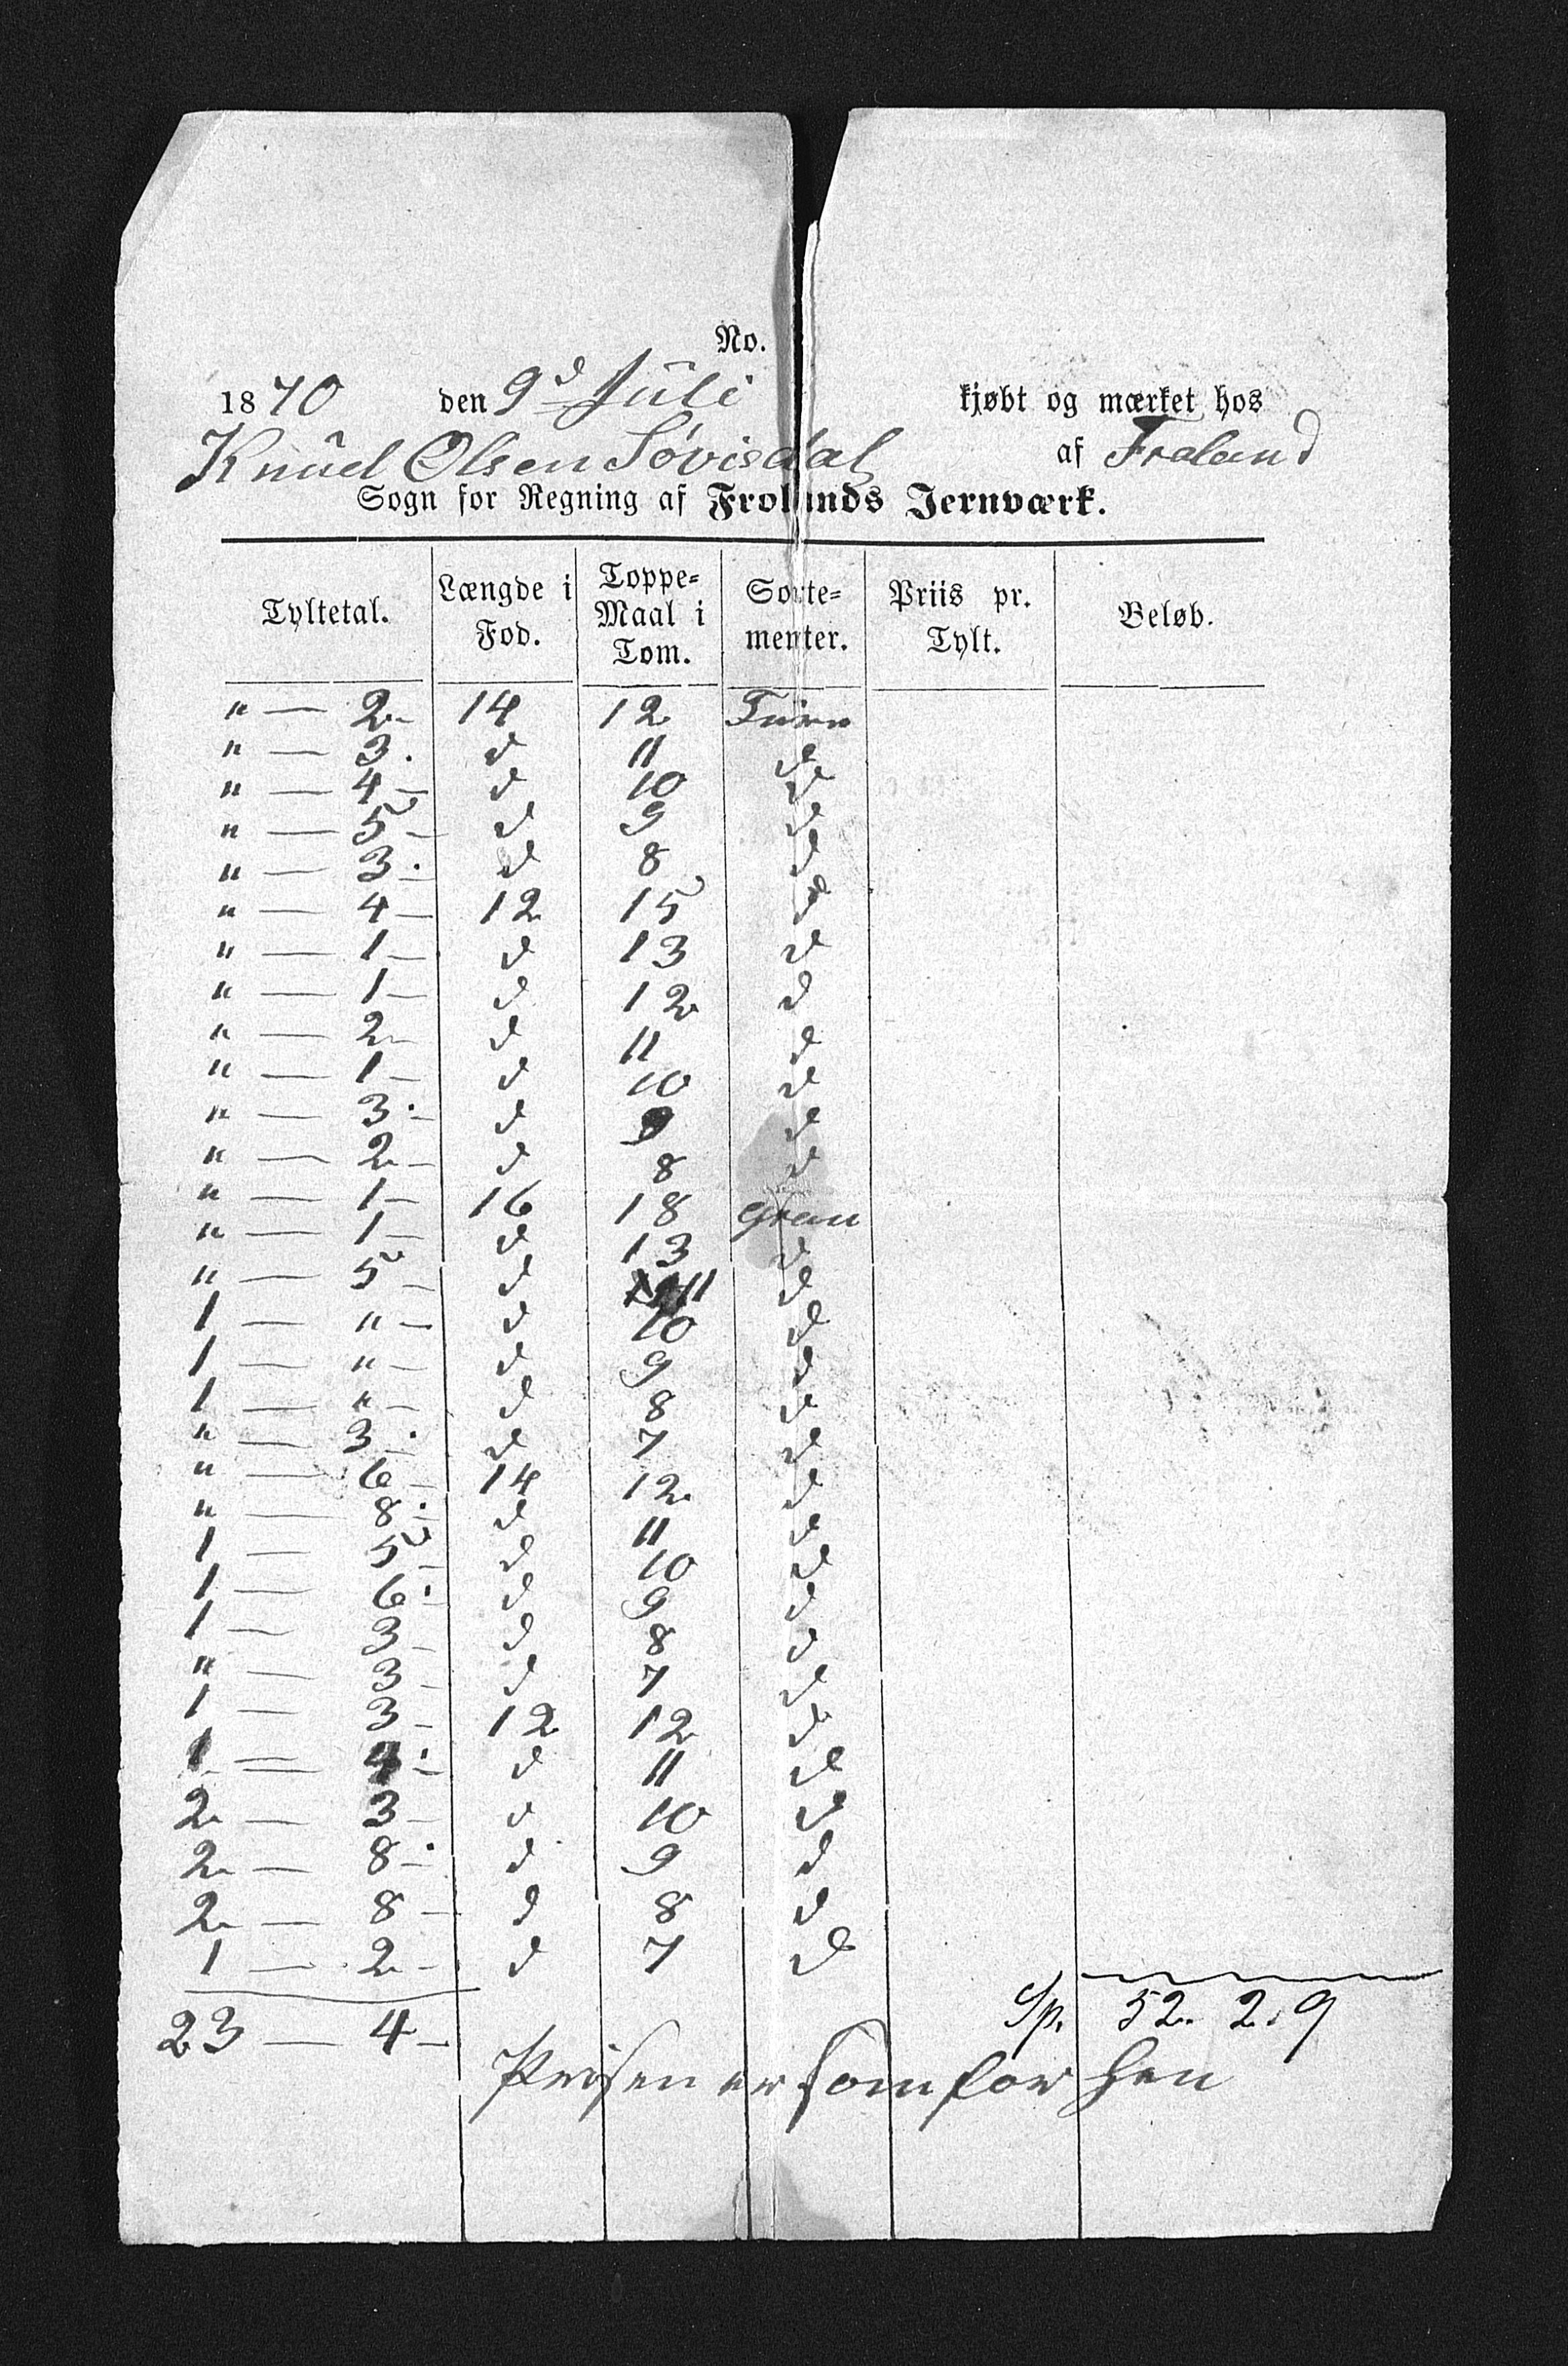 No.
1870 den 9d Juli kjøbt og mærket hos
Knud Olsen Søvisdal af Froland
Sogn for Regning af Frolands Jernværk.
Tyltetal. Længde i Fod. Toppe-Maal i Tom. Sorte-menter. Priis pr. Tylt. Beløb.
" — 2 - 14 12 Furu
" — 3 . d 11 d
" — 4 - d 10 d
" — 5 - d 9 d
" — 3 - d 8 d
" — 4 - 12 15 d
" — 1 - d 13 d
" — 1 - d 12 d
" — 2 - d 11 d
" — 1 - d 10 d
" — 3 - d 9 d
" — 2 - d 8 d
" — 1 - 16 18 Gran
" — 1 - d 13 d
" — 5 - d 11 d
1 — " - d 10 d
1 — " - d 9 d
1 — " - d 8 d
" — 3 - d 7 d
" — 6 - 14 12 d
" — 8 - d 11 d
1 — 5 - d 10 d
1 — 6 - d 9 d
1 — 3 - d 8 d
" — 3 - d 7 d
1 — 3 - 12 12 d
1 — 4 - d 11 d
2 — 3 - d 10 d
2 — 8 - d 9 d
2 — 8 - d 8 d
1 — 2 - d 7 d
23 — 4 - Sp. 52. 2. 9
Prisen er som for hen